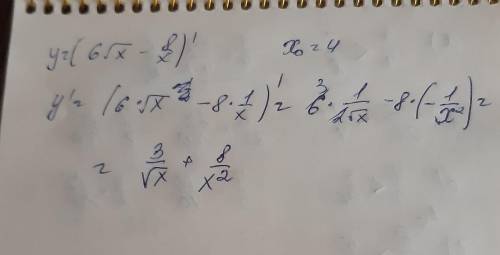 y=(6√x - 8/x)' x₀=4
y'=(6·√x - 8·1/x)'= 6·1/2√x - 8·(-1/x²)=
= 3/√x + 8/x²